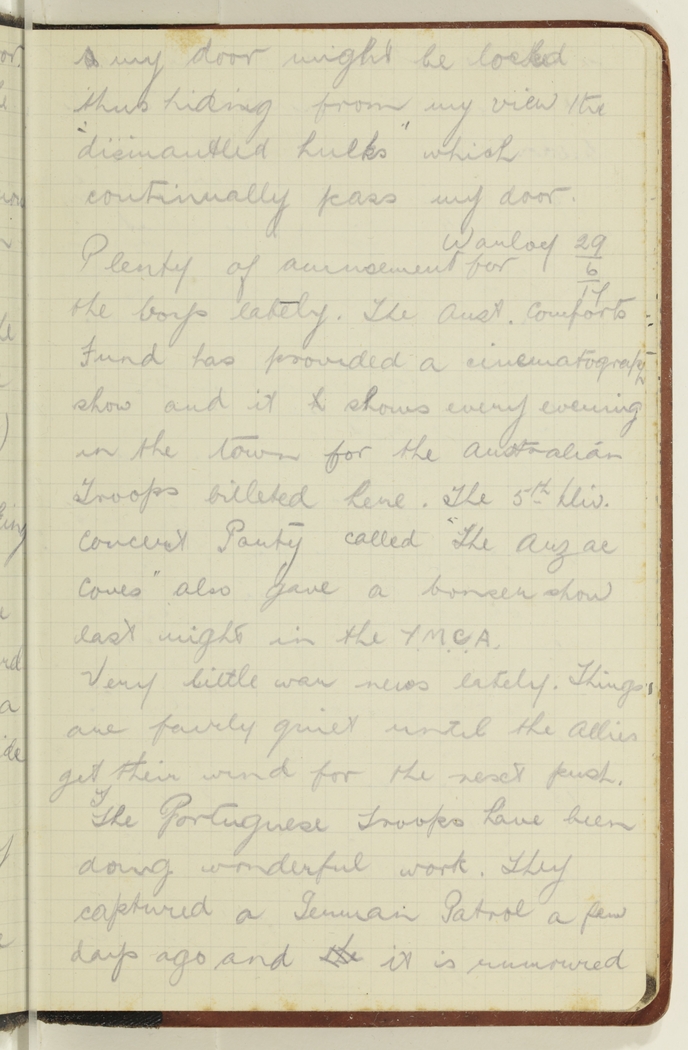 my door might be locked
thus hiding from my view the
"dismantled hulks" which
continually pass my door.
29
6
17
Plenty of amusement for
the boys lately. The Aust. Comforts
Fund has provided a cinematograph
show and it shows every evening
in the town for the Australian
Troops billeted here. The 5th Div.
Concert Party called "The Anzac
Coves" also gave a bonser show
last night in the Y.M.C.A.
Very little war news lately. Things
are fairly quiet until the Allies
get their wind for the next push.
The Portuguese Troops have been
doing wonderful work. They
captured a German Patrol a few
days ago and it is rumoured